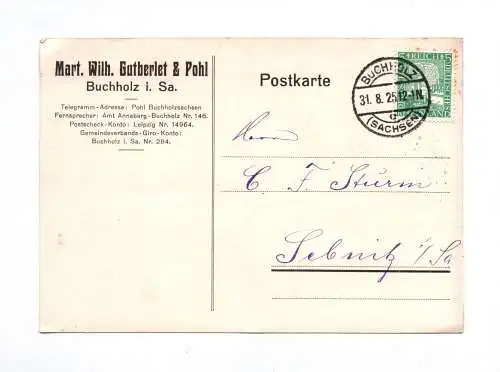 Mart. Wilh. Gutberlet & Pohl
Buchholz i. Sa.
Telegramm-Adresse: Pohl Buchholzsachsen
Fernsprecher: Amt Annaberg-Buchholz Nr. 146.
Postscheck-Konto: Leipzig Nr. 14964.
Gemeindeverbands-Giro-Konto:
Buchholz i. Sa. Nr. 284.
Postkarte
BUCHHOLZ
31. 8. 25. 12-1N.
c
(SACHSEN)
Herrn
C. F. Sturm
Sebnitz i/Sa